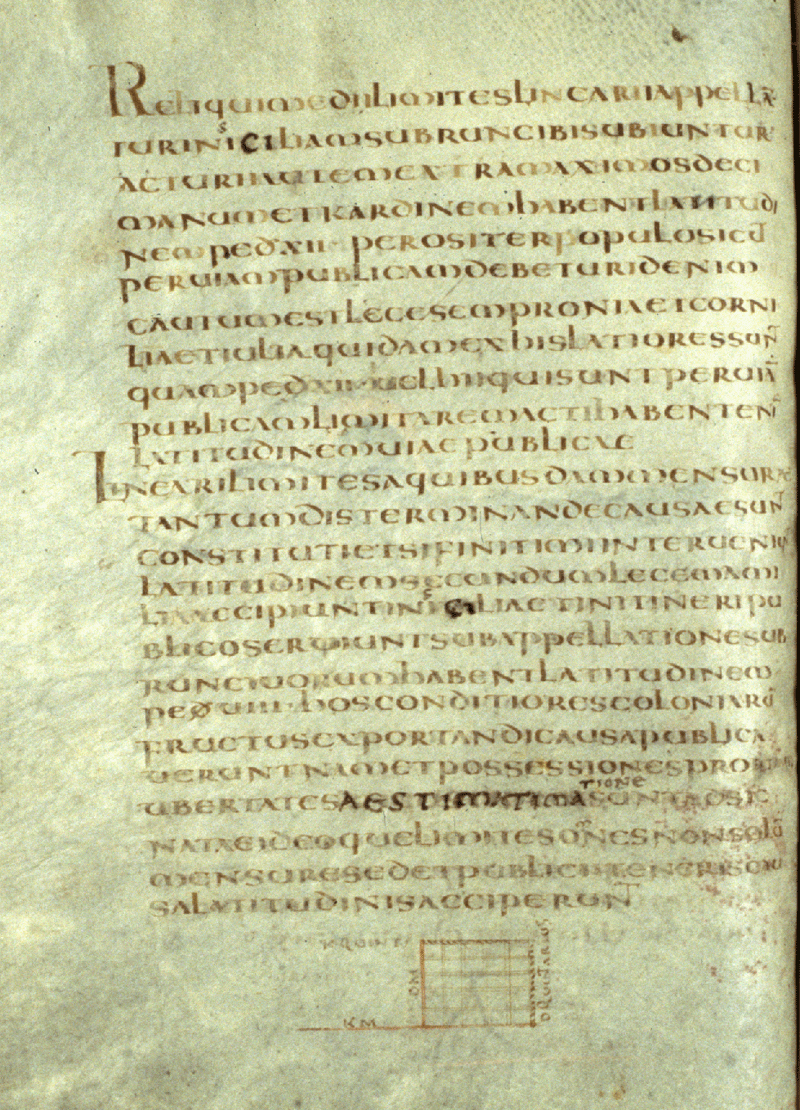 Reliqui medii limites linearii appella
tur in sicilia m subruncibi subiuntur
actuarii autem extra maximos deci
manum et kardinem habent latitudi
nem ped xii per os iter populo sicū
per uiam publicam debetur id enim
cautum est lege sempronia et corni
lia et iulia quidam ex his latiores sun̄
quam ped xii uel hii qui sunt per uiā
publicam limitarem acti habent eni
latitudinem uiae publicae
Lineari limites a quibusdam mensurae
tantum disterminandae causae sunt
constituti et si finitimi interueniu
latitudinem secundum legem mami
lia accipiunt in sicilia etin itineri pu
blico seruiunt sub appellatione sub
runciuorum habent latitudinem
ped uiii hos conditiores coloniarū
fructus exportandi causa publica
uerunt nam et possessiones pro
ubertates aestimatima tione sunt adsig
natae ideoque limites om̄es non solū
mensure sed et publici iteneris cau
sa latitudinis acciperunt
DM
KM